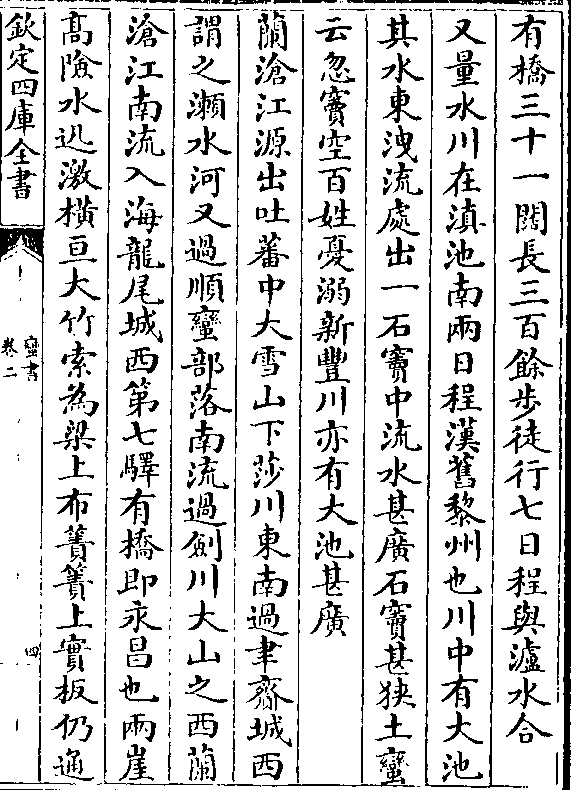 有橋三十一闊長三百餘步徒行七日程與瀘水合
又量水川在滇池南兩日程漢舊黎州也川中有大池
其水東洩流處出一石竇中流水甚廣石竇甚狹土蠻
云忽竇空百姓憂溺新豐川亦有大池甚廣
蘭滄江源出吐蕃中大雪山下莎川東南過聿齎城西
謂之瀨水河又過順蠻部落南流過劍川大山之西蘭
滄江南流入海龍尾城西第七驛有橋即永昌也兩崖
高險水迅激橫亘大竹索為梁上布簀簀上實板仍通
欽定四庫全書
蠻書
卷二
四